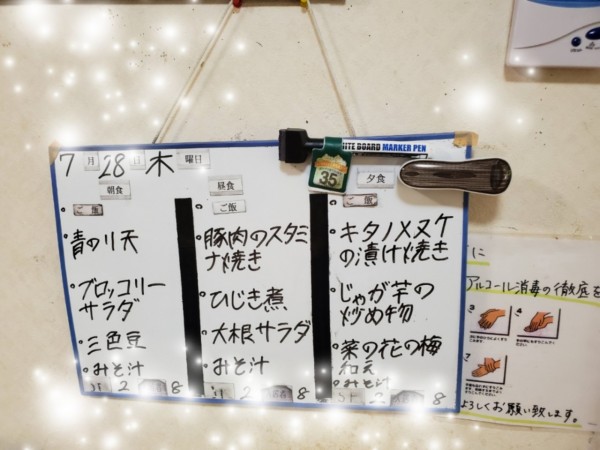 7月28日木曜日
朝食
ご飯
・青のり天
・ブロッコリー
サラダ
・三色豆
・みそ汁
2 8
昼食
ご飯
・豚肉のスタミ
ナ焼き
・ひじき煮
・大根サラダ
・みそ汁
2 8
夕食
ご飯
・キタノメヌケ
の漬け焼き
・じゃが芋の
炒め物
・菜の花の梅
和え
・みそ汁
2 8
WHITE BOARD MARKER PEN
35
に
アルコール消毒の徹底を
よろしくお願い致します。